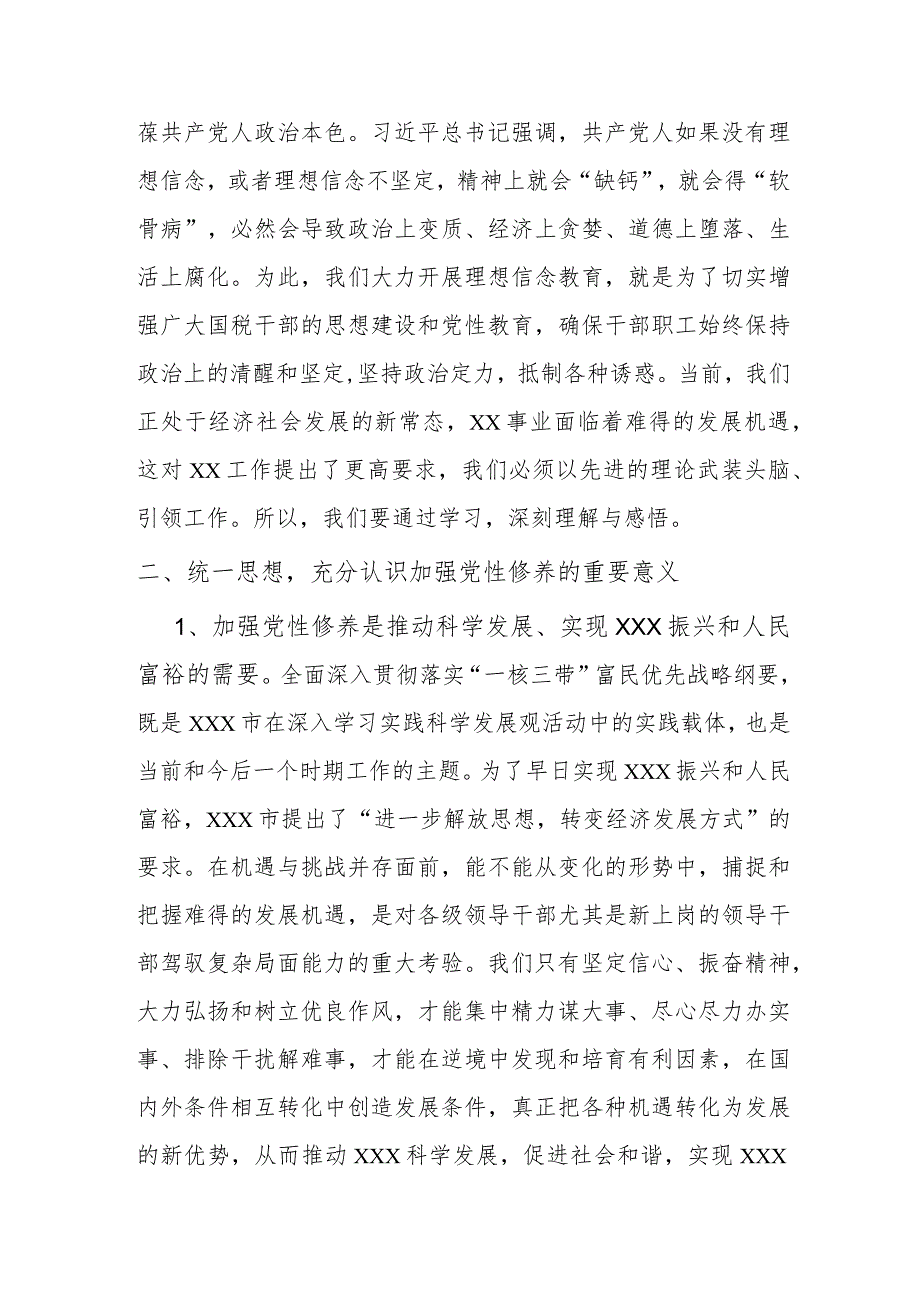 葆共产党人政治本色。习近平总书记强调，共产党人如果没有理
想信念，或者理想信念不坚定，精神上就会“缺钙”，就会得“软
骨病”，必然会导致政治上变质、经济上贪婪、道德上堕落、生
活上腐化。为此，我们大力开展理想信念教育，就是为了切实增
强广大国税干部的思想建设和党性教育，确保干部职工始终保持
政治上的清醒和坚定,坚持政治定力，抵制各种诱惑。当前，我们
正处于经济社会发展的新常态，XX 事业面临着难得的发展机遇，
这对 XX 工作提出了更高要求，我们必须以先进的理论武装头脑、
引领工作。所以，我们要通过学习，深刻理解与感悟。
二、统一思想，充分认识加强党性修养的重要意义
1、加强党性修养是推动科学发展、实现 XXX 振兴和人民
富裕的需要。全面深入贯彻落实“一核三带”富民优先战略纲要，
既是 XXX 市在深入学习实践科学发展观活动中的实践载体，也是
当前和今后一个时期工作的主题。为了早日实现 XXX 振兴和人民
富裕，XXX 市提出了“进一步解放思想，转变经济发展方式”的
要求。在机遇与挑战并存面前，能不能从变化的形势中，捕捉和
把握难得的发展机遇，是对各级领导干部尤其是新上岗的领导干
部驾驭复杂局面能力的重大考验。我们只有坚定信心、振奋精神，
大力弘扬和树立优良作风，才能集中精力谋大事、尽心尽力办实
事、排除干扰解难事，才能在逆境中发现和培育有利因素，在国
内外条件相互转化中创造发展条件，真正把各种机遇转化为发展
的新优势，从而推动 XXX 科学发展，促进社会和谐，实现 XXX